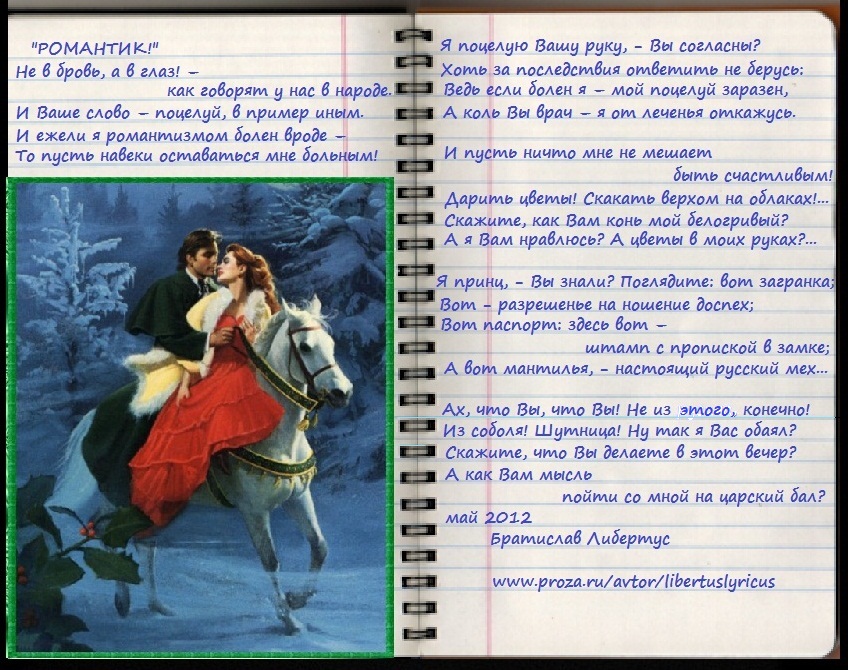 "РОМАНТИК!"
Не в бровь, а в глаз! –
как говорят у нас в народе.
И Ваше слово – поцелуй, в пример иным.
И ежели я романтизмом болен вроде –
То пусть навеки оставаться мне больным!
Я поцелую Вашу руку, - Вы согласны?
Хоть за последствия ответить не берусь:
Ведь если болен я – мой поцелуй заразен,
А коль Вы врач – я от леченья откажусь.
И пусть ничто мне не мешает
быть счастливым!
Дарить цветы! Скакать верхом на облаках!...
Скажите, как Вам конь мой белогривый?
А я Вам нравлюсь? А цветы в моих руках?...
Я принц, - Вы знали? Поглядите: вот загранка;
Вот - разрешенье на ношение доспех;
Вот паспорт: здесь вот –
штамп с пропиской в замке;
А вот мантилья, - настоящий русский мех...
Ах, что Вы, что Вы! Не из этого, конечно!
Из соболя! Шутница! Ну так я Вас обаял?
Скажите, что Вы делаете в этот вечер?
А как Вам мысль
пойти со мной на царский бал?
май 2012
Братислав Либертус
www.proza.ru/avtor/libertuslyricus